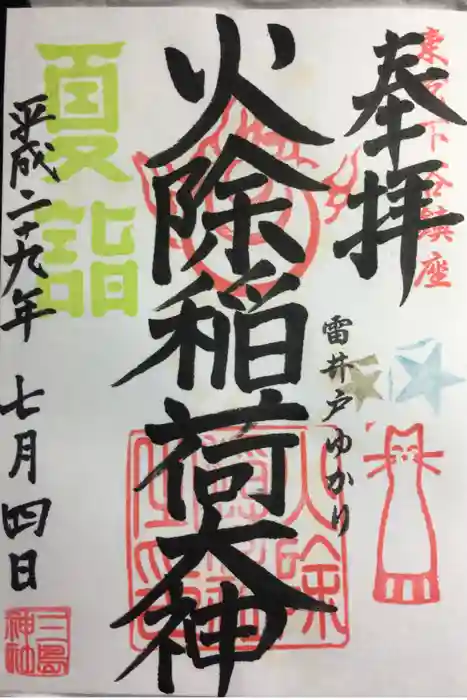 奉拝
東京下谷鎮座
雷井戸ゆかり
火除稲荷大神
夏詣
平成二十九年 七月四日
三島神社